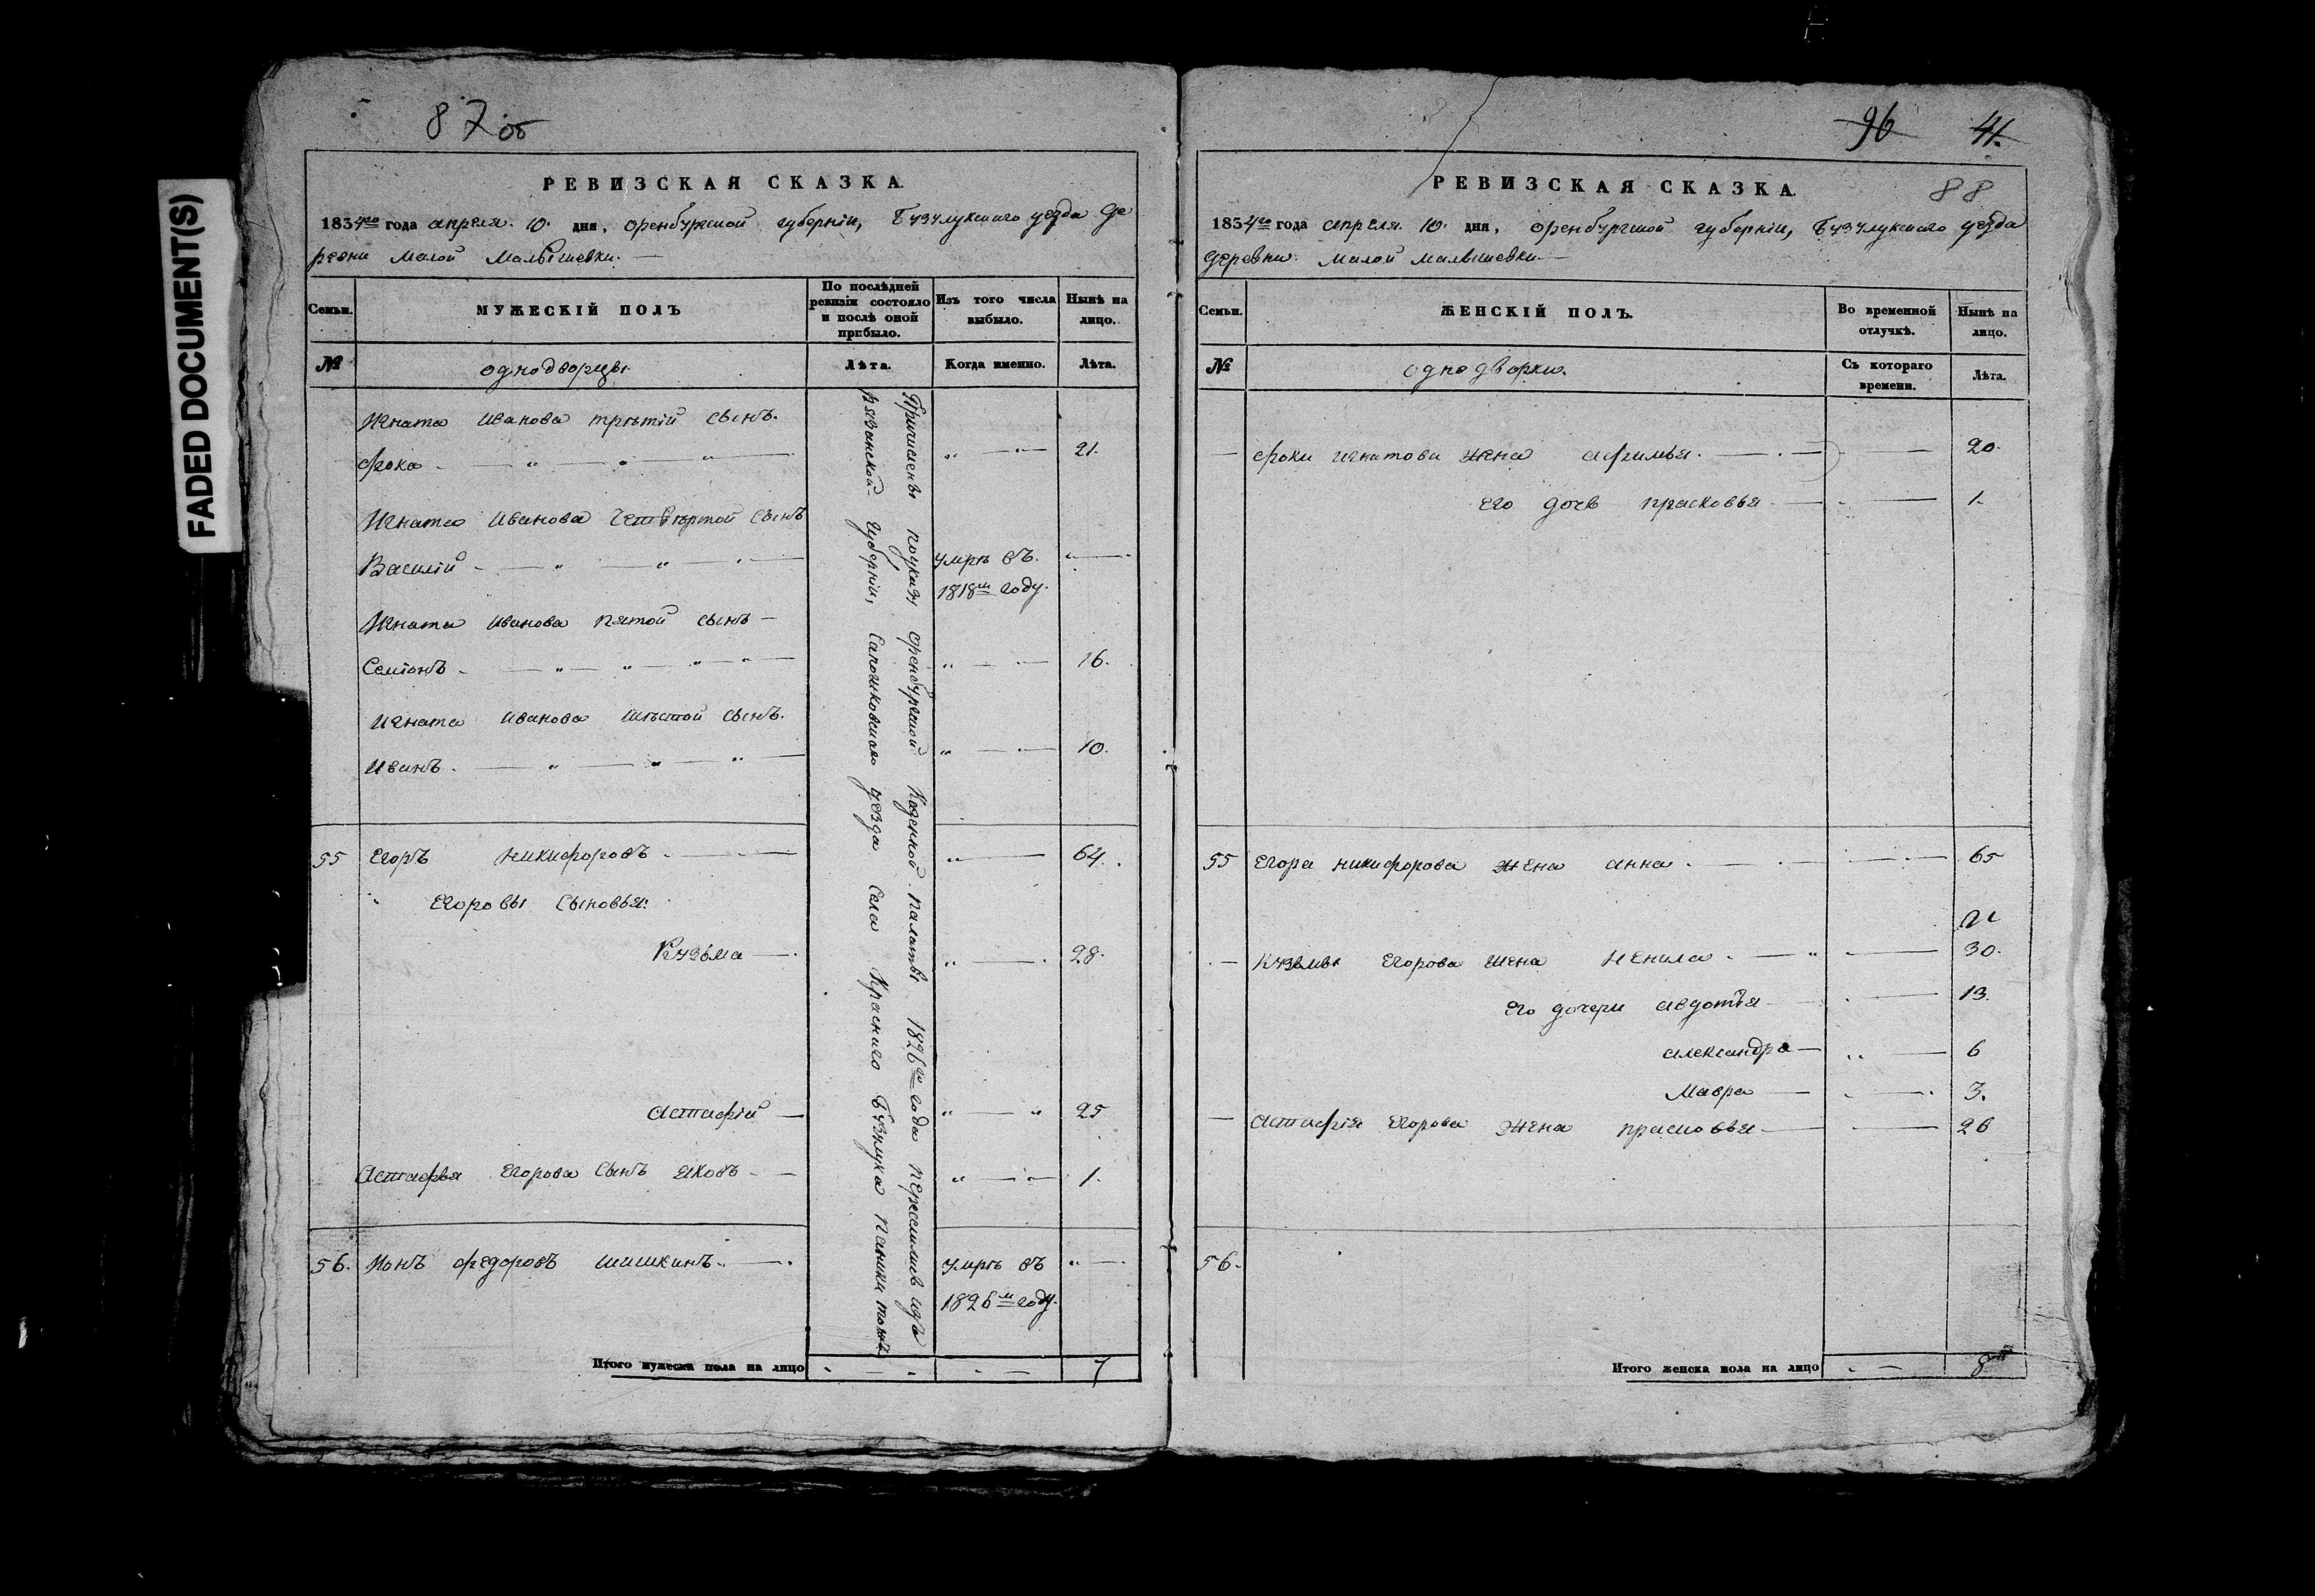 FADED DOCUMENT(S)
87 об
РЕВИЗСКАЯ СКАЗКА.
1834го года апреля 10. дня, оренбургской губерніи, Бузулукскаго уезда де
ревни Малой Малышевки.
Семьи.
МУЖЕСКІЙ ПОЛЪ
По послѣдней ревизіи состояло и послѣ оной прибыло.
Изъ того числа выбыло.
Нынѣ на лицо.
№
однодворцы.
Лѣта.
Когда именно.
Лѣта.
Игната Иванова третій сынъ.
21.
Игната Иванова четвертой сынъ
Василій умре въ
1818м году.
Игната Иванова пятой сынъ
Семіонъ 16.
Игната Иванова шестой сынъ.
Иванъ. 10.
55 Егоръ Никифоровъ 64.
Егоровы сыновья:
Кузьма 28.
Астафій 25
Астафья Егорова сынъ Яковъ 1.
56. Ионъ Федоровъ Шишкинъ. умре въ
1826м году.
Причислены поуказу Оренбургской Казенной палаты 1826го года переселились
Рязанской губерніи, Сапожковскаго уезда села Краснаго Бузулука Паники тожъ
Итого мужеска пола на лицо 7
96 41.
88
РЕВИЗСКАЯ СКАЗКА.
1834го года апреля 10. дня, оренбургской губерніи, Бузулукскаго уезда
деревни Малой Малышевки
Семьи.
ЖЕНСКІЙ ПОЛЪ.
Во временной отлучкѣ.
Нынѣ на лицо.
№
однодворки.
Съ котораго времени.
Лѣта.
Игнатова жена Афимья. 20.
его дочь Прасковья 1.
55 Егора Никифорова жена Анна. 65
Кузьмы Егорова жена Ненила. 30.
его дочери Авдотья 13.
Александра 6
Мавра 3.
Астафія Егорова жена Прасковья 26
56.
Итого женска пола на лицо 8